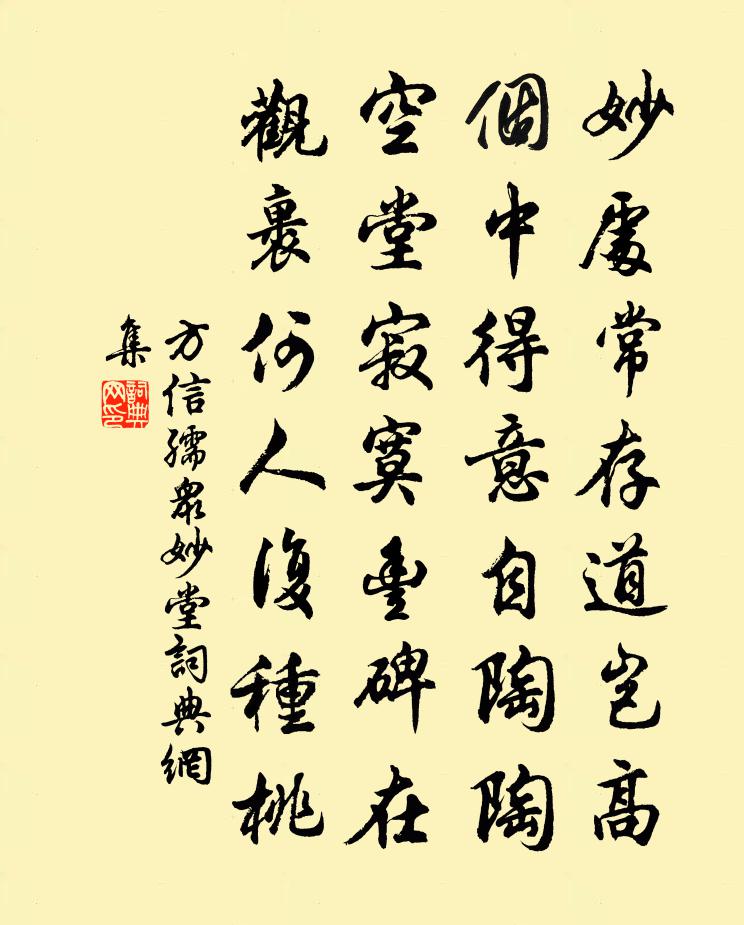 妙處常存道豈高
個中得意自陶陶
空堂寂寞豐碑在
觀裏何人復種桃
方信孺眾妙堂詞典網
集
詞典網印